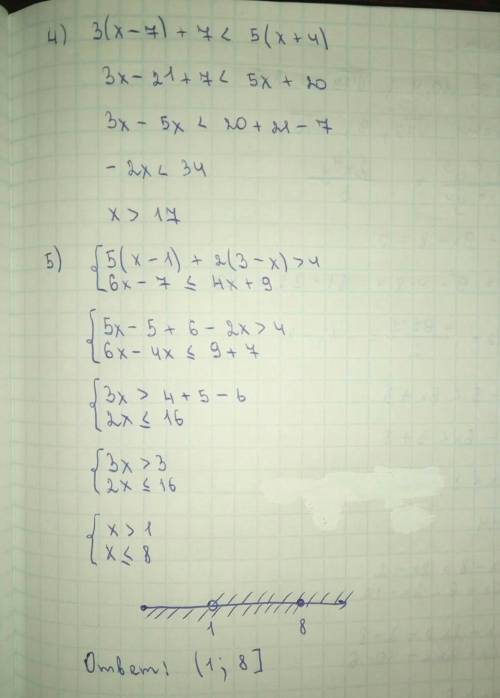 4) 3(x-7) + 7 < 5(x+4)
3x - 21 + 7 < 5x + 20
3x - 5x < 20 + 21 - 7
- 2x < 34
x > 17
5) { 5(x-1) + 2(3-x) > 4
6x - 7 ≤ 4x + 9
{ 5x - 5 + 6 - 2x > 4
6x - 4x ≤ 9 + 7
{ 3x > 4 + 5 - 6
2x ≤ 16
{ 3x > 3
2x ≤ 16
{ x > 1
x ≤ 8
1 8
Ответ: (1; 8]